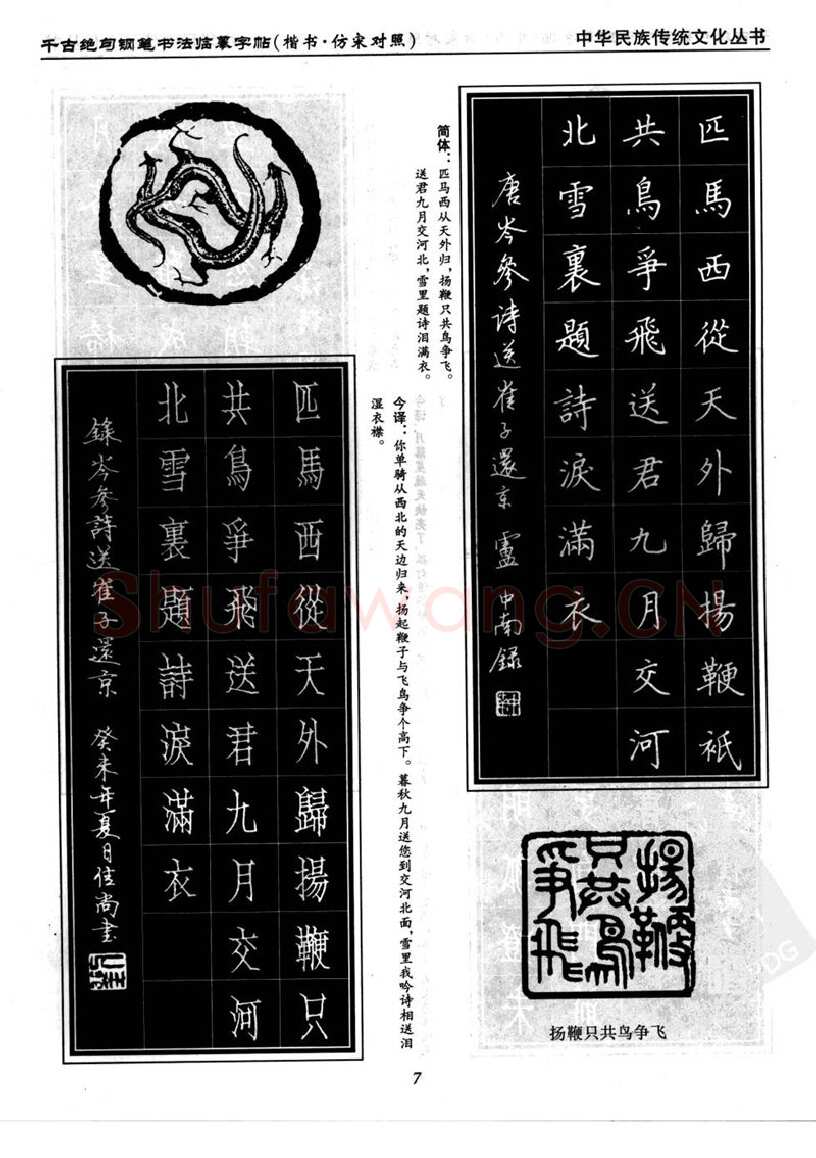 千古绝句钢笔书法临摹字帖(楷书·仿宋对照)
中华民族传统文化丛书
匹馬西從天外歸揚鞭衹
共鳥爭飛送君九月交河
北雪裏題詩淚滿衣
唐岑參詩送崔子還京 盧中南録
简体：匹马西从天外归，扬鞭只共鸟争飞。
送君九月交河北，雪里题诗泪满衣。
今译：你单骑从西北的天边归来，扬起鞭子与飞鸟争个高下。暮秋九月送您到交河北面，雪里我吟诗相送泪
湿衣襟。
匹馬西從天外歸揚鞭只
共鳥爭飛送君九月交河
北雪裏題詩淚滿衣
錄岑參詩送崔子還京 癸未年夏日佳尚書
揚鞭
只共鳥
爭飛
扬鞭只共鸟争飞
7
Shufawang.CN